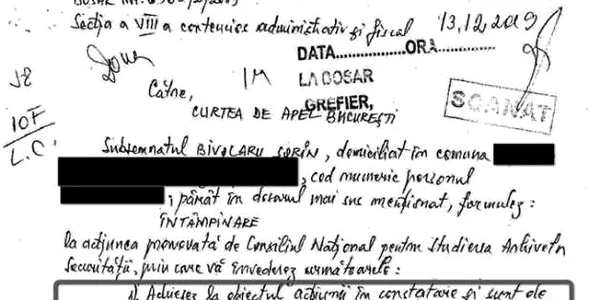 Secția a VIII a contencios administrativ și fiscal 13,12,2019
DATA................ORA................
LA DOSAR
GREFIER,
SCANAT
18
10F
L.C.
1M
Către,
CURTEA DE APEL BUCUREȘTI
Subsemnatul BIVOLARU SORIN, domiciliat în comuna
, cod numeric personal
, pârât în dosarul mai sus menționat, formulez:
ÎNTÂMPINARE
la acțiunea promovată de Consiliul Național pentru Studierea Arhivelor
Securității, prin care vă învederez următoarele:
Achiesez la obiectul acțiunii în constatare și sunt de